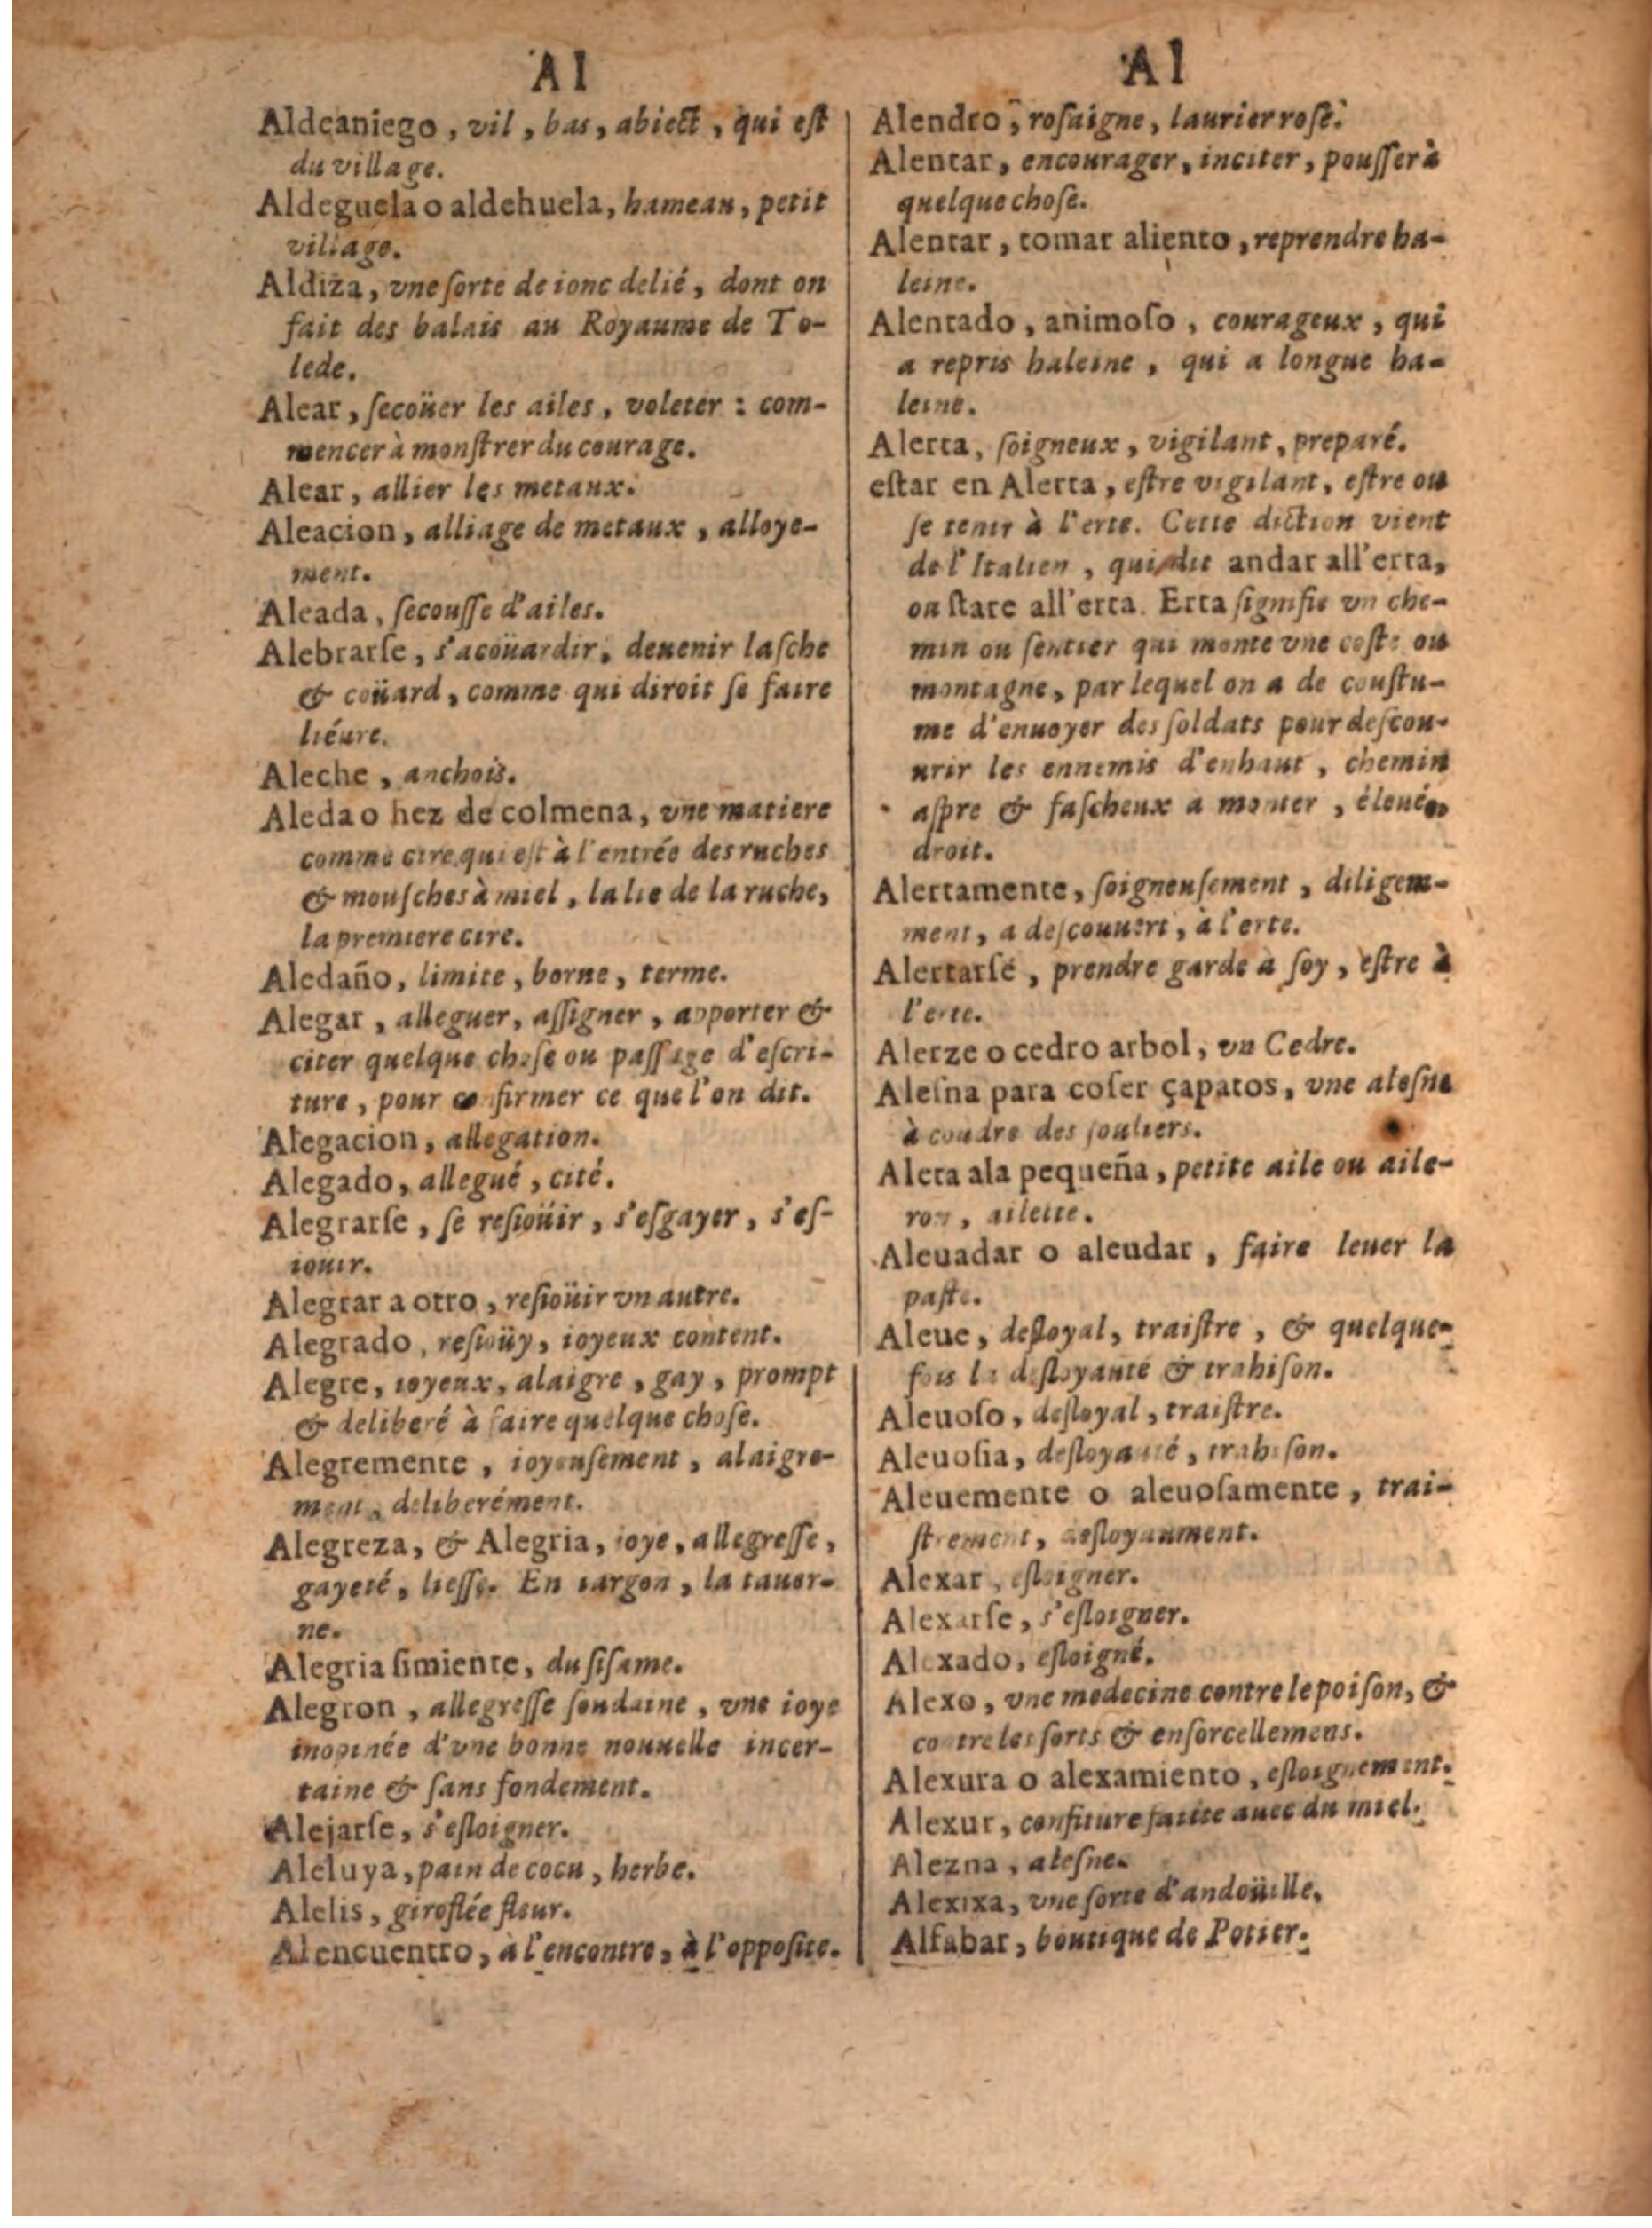 Al
Aldeaniego, vil, bas, abiect, qui eſt
du village.
Aldeguela o aldehuela, hameau, petit
village.
Aldiza, vne ſorte de ionc delié, dont on
fait des balais au Royaume de To-
lede.
Alear, ſecoüer les ailes, voleter : com-
mencer à monſtrer du courage.
Alear, allier les metaux.
Aleacion, alliage de metaux, alloye-
ment.
Aleada, ſecouſſe d'ailes.
Alebrarſe, s'acoüardir, deuenir laſche
& coüard, comme qui diroit ſe faire
liéure.
Aleche, anchois.
Aleda o hez de colmena, vne matiere
comme cire qui eſt à l'entrée des ruches
& mouſches à miel, la lie de la ruche,
la premiere cire.
Aledaño, limite, borne, terme.
Alegar, alleguer, aſſigner, apporter &
citer quelque choſe ou paſſage d'eſcri-
ture, pour confirmer ce que l'on dit.
Alegacion, allegation.
Alegado, allegué, cité.
Alegrarſe, ſe reſioüir, s'eſgayer, s'eſ-
iouir.
Alegrar a otro, reſioüir vn autre.
Alegrado, reſioüy, ioyeux content.
Alegre, ioyeux, alaigre, gay, prompt
& deliberé à faire quelque choſe.
Alegremente, ioyeuſement, alaigre-
ment, deliberément.
Alegreza, & Alegria, ioye, allegreſſe,
gayeté, lieſſe. En iargon, la tauer-
ne.
Alegria ſimiente, du ſiſame.
Alegron, allegreſſe ſoudaine, vne ioye
inopinée d'vne bonne nouuelle incer-
taine & ſans fondement.
Alejarſe, s'eſloigner.
Aleluya, pain de cocu, herbe.
Alelis, giroflée fleur.
Al encuentro, à l'encontre, à l'oppoſite.
Al
Alendro, roſaigne, laurier roſe.
Alentar, encourager, inciter, pouſſer à
quelque choſe.
Alentar, tomar aliento, reprendre ha-
leine.
Alentado, animoſo, courageux, qui
a repris haleine, qui a longue ha-
leine.
Alerta, ſoigneux, vigilant, preparé.
eſtar en Alerta, eſtre vigilant, eſtre ou
ſe tenir à l'erte. Cette diction vient
de l'Italien, qui dit andar all'erta,
ou ſtare all'erta. Erta ſignifie vn che-
min ou ſentier qui monte vne coſte ou
montagne, par lequel on a de couſtu-
me d'enuoyer des ſoldats pour deſcou-
urir les ennemis d'enhaut, chemin
aſpre & faſcheux a monter, éleué,
droit.
Alertamente, ſoigneuſement, diligem-
ment, a deſcouuert, à l'erte.
Alertarſe, prendre garde à ſoy, eſtre à
l'erte.
Alerze o cedro arbol, vn Cedre.
Aleſna para coſer çapatos, vne aleſne
à coudre des ſouliers.
Aleta ala pequeña, petite aile ou aile-
ron, ailette.
Aleuadar o aleudar, faire leuer la
paſte.
Aleue, deſloyal, traiſtre, & quelque-
fois la deſloyauté & trahiſon.
Aleuoſo, deſloyal, traiſtre.
Aleuoſia, deſloyauté, trahiſon.
Aleuemente o aleuoſamente, trai-
ſtrement, deſloyaument.
Alexar, eſloigner.
Alexarſe, s'eſloigner.
Alexado, eſloigné.
Alexo, vne medecine contre le poiſon, &
contre les ſorts & enſorcellemens.
Alexura o alexamiento, eſloignement.
Alexur, confiture faitte auec du miel.
Alezna, aleſne.
Alexixa, vne ſorte d'andoüille.
Alfabar, boutique de Potier.